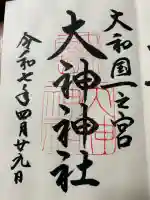 大和国一之宮
大神神社
令和七年四月廿九日